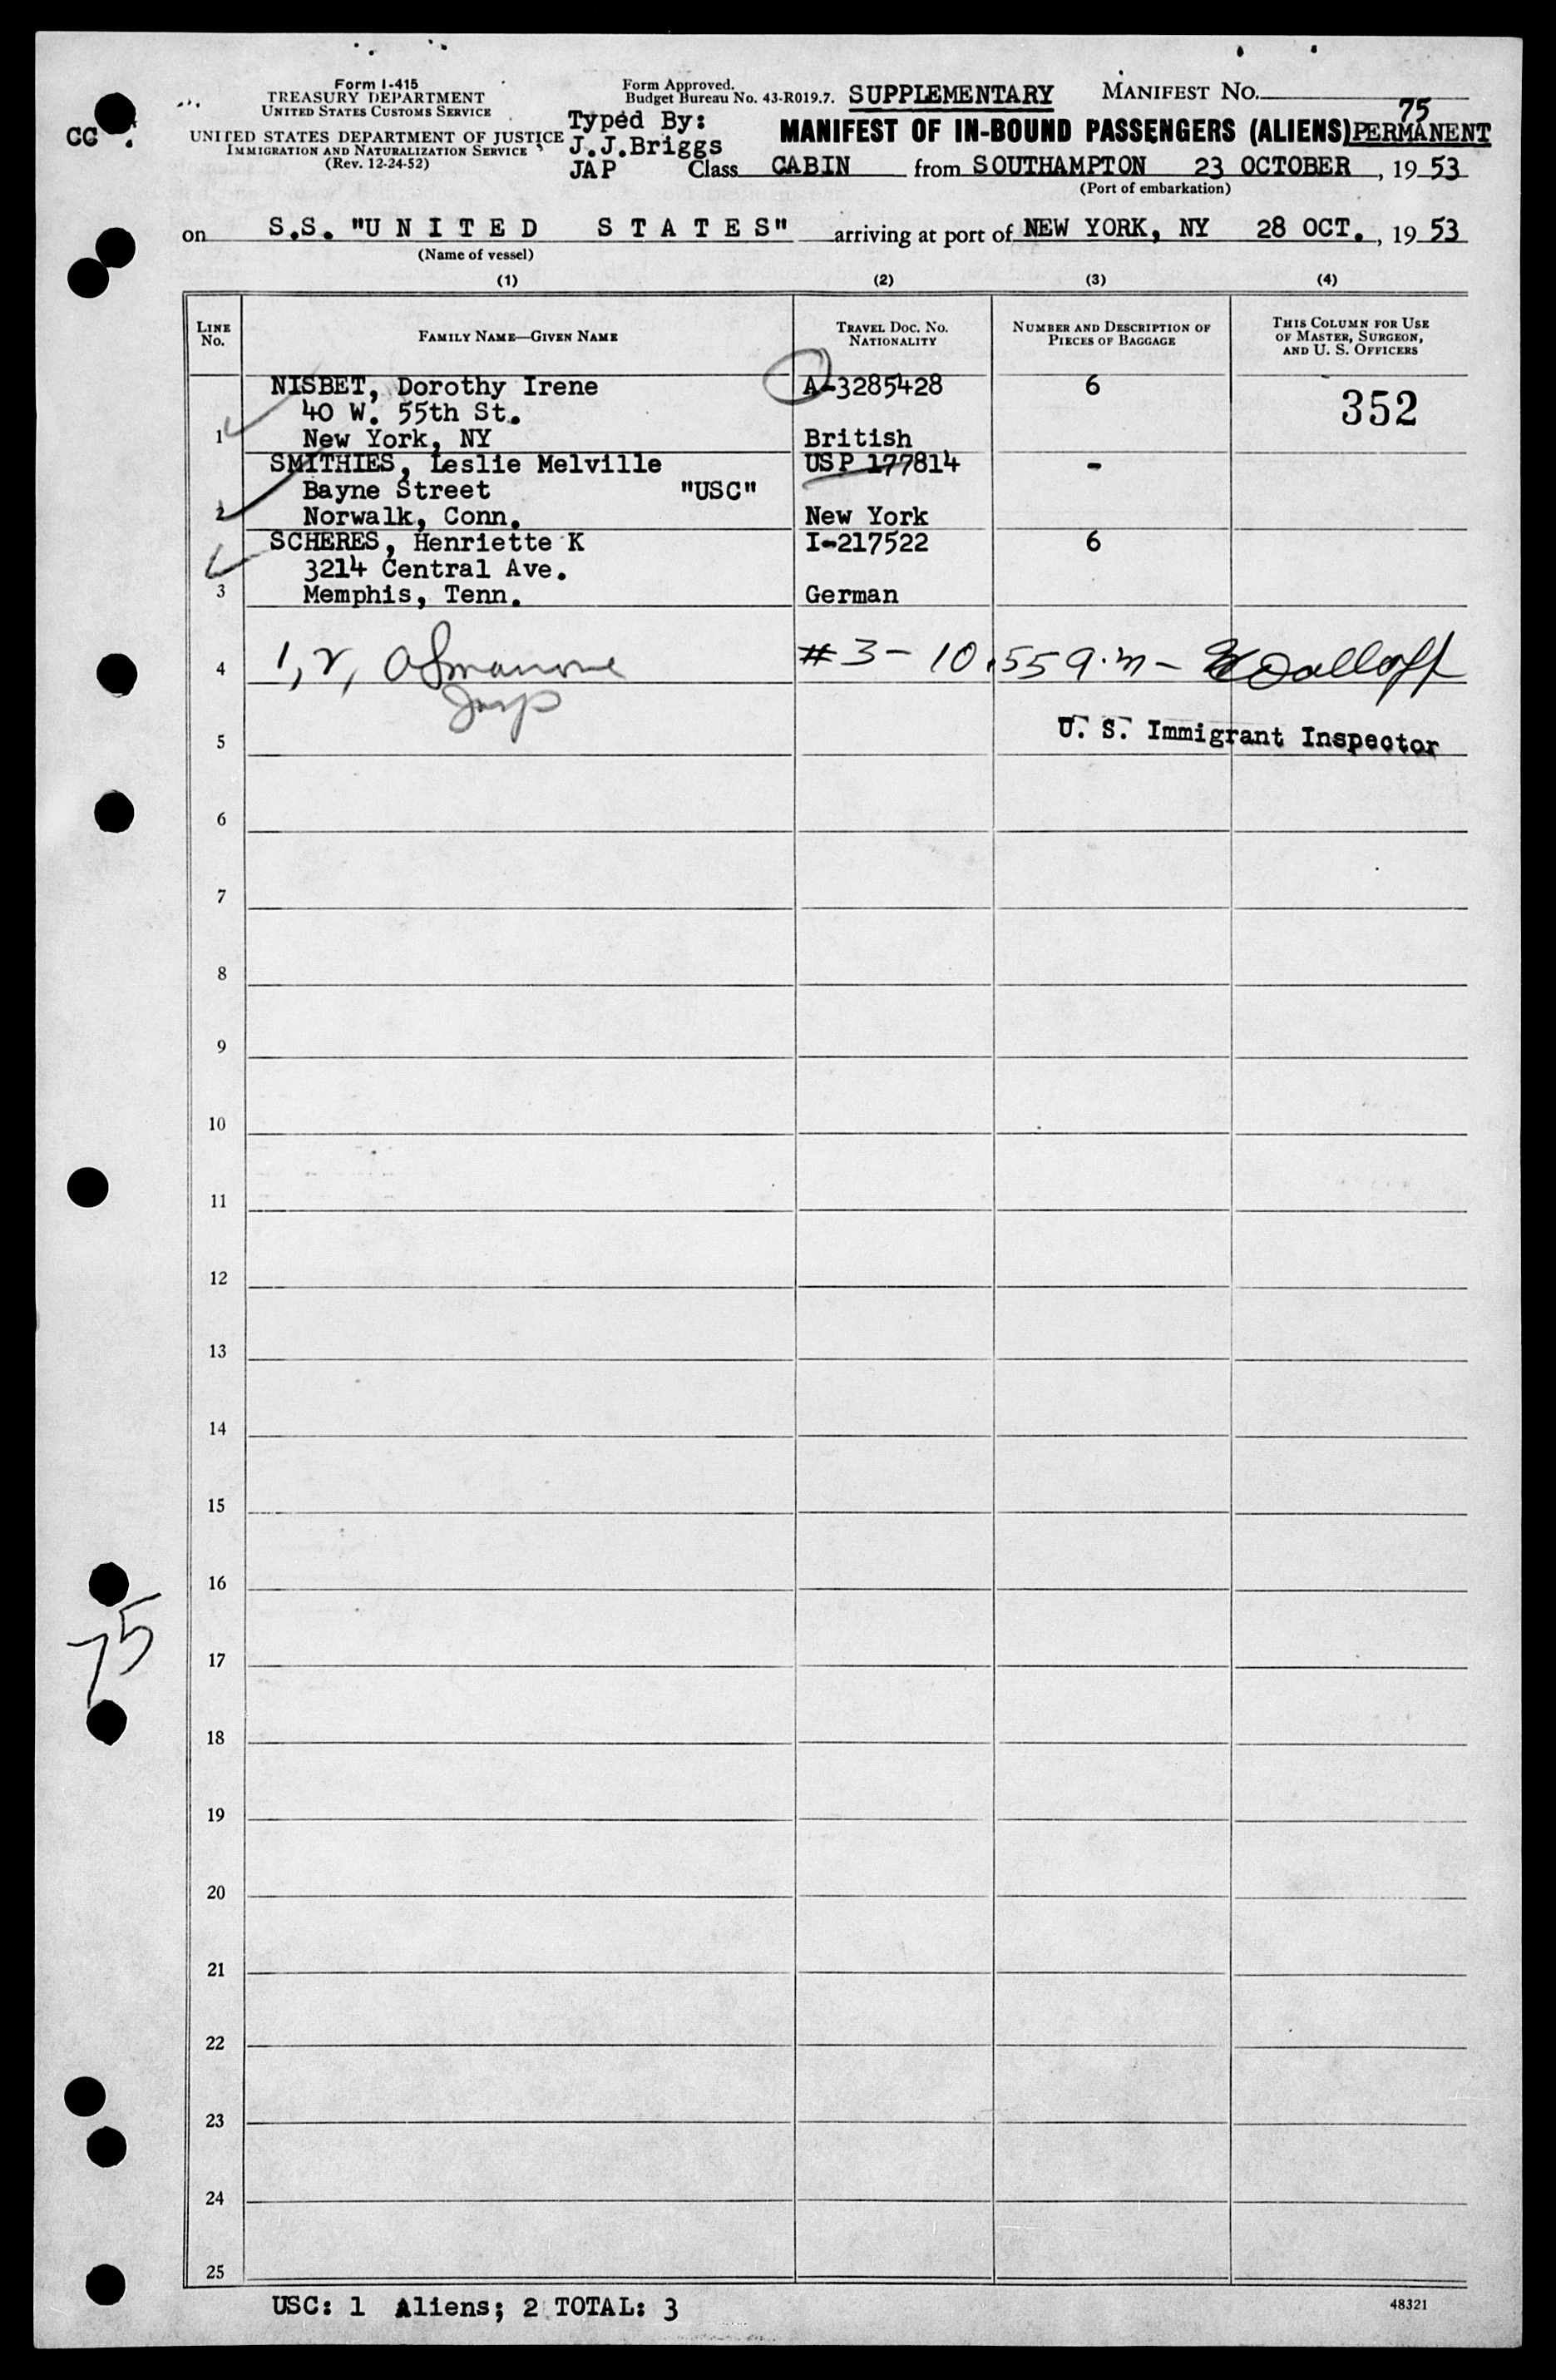 Form I-415
TREASURY DEPARTMENT
UNITED STATES CUSTOMS SERVICE
UNITED STATES DEPARTMENT OF JUSTICE
IMMIGRATION AND NATURALIZATION SERVICE
(Rev. 12-24-52)
CC
Form Approved.
Budget Bureau No. 43-R019.7.
Typed By:
J.J.Briggs
JAP
SUPPLEMENTARY MANIFEST NO.
75
MANIFEST OF IN-BOUND PASSENGERS (ALIENS) PERMANENT
Class CABIN from SOUTHAMPTON 23 OCTOBER, 1953
(Port of embarkation)
on S.S. "U N I T E D S T A T E S" arriving at port of NEW YORK, NY 28 OCT., 1953
(Name of vessel)
(1) (2) (3) (4)
LINE No.
FAMILY NAME—GIVEN NAME
TRAVEL DOC. NO. NATIONALITY
NUMBER AND DESCRIPTION OF PIECES OF BAGGAGE
THIS COLUMN FOR USE OF MASTER, SURGEON, AND U. S. OFFICERS
NISBET, Dorothy Irene A-3285428 6 352
40 W. 55th St.
1 New York, NY British
SMITHIES, Leslie Melville USP 177814 -
Bayne Street "USC"
2 Norwalk, Conn. New York
SCHERES, Henriette K I-217522 6
3214 Central Ave.
3 Memphis, Tenn. German
4 1, 2, #3 - 10.55 a.m -
Insp
U. S. Immigrant Inspector
5
6
7
8
9
10
11
12
13
14
15
16
75
17
18
19
20
21
22
23
24
25
USC: 1 Aliens; 2 TOTAL: 3
48321